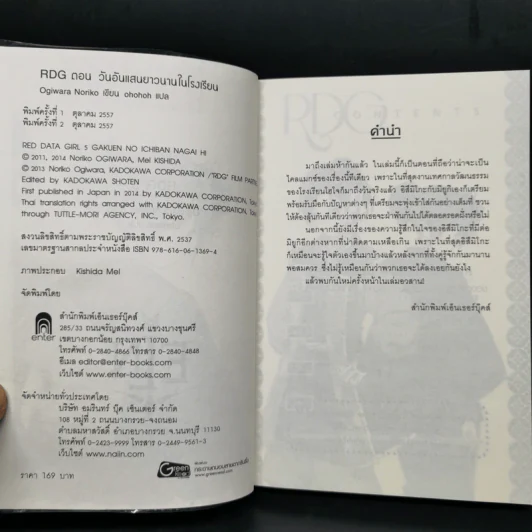 RDG ตอน วันอันแสนยาวนานในโรงเรียน
Ogiwara Noriko เขียน ohohoh แปล
พิมพ์ครั้งที่ 1 ตุลาคม 2557
พิมพ์ครั้งที่ 2 ตุลาคม 2557
RED DATA GIRL 5 GAKUEN NO ICHIBAN NAGAI HI
© 2011, 2014 Noriko OGIWARA, Mel KISHIDA
© 2013 Noriko OGIWARA, KADOKAWA CORPORATION /"RDG" FILM PARTN
Edited by KADOKAWA SHOTEN
First published in Japan in 2014 by KADOKAWA CORPORATION, Tok
Thai translation rights arranged with KADOKAWA CORPORATION, Tok
through TUTTLE-MORI AGENCY, INC., Tokyo.
สงวนลิขสิทธิ์ตามพระราชบัญญัติลิขสิทธิ์ พ.ศ. 2537
เลขมาตรฐานสากลประจำหนังสือ ISBN 978-616-06-1369-4
ภาพประกอบ Kishida Mel
จัดพิมพ์โดย
enter
สำนักพิมพ์เอ็นเธอร์บุ๊คส์
285/33 ถนนจรัญสนิทวงศ์ แขวงบางขุนศรี
เขตบางกอกน้อย กรุงเทพฯ 10700
โทรศัพท์ 0-2840-4866 โทรสาร 0-2840-4848
อีเมล editor@enter-books.com
เว็บไซต์ www.enter-books.com
จัดจำหน่ายทั่วประเทศโดย
บริษัท อมรินทร์ บุ๊ค เซ็นเตอร์ จำกัด
108 หมู่ที่ 2 ถนนบางกรวย-จงถนอม
ตำบลมหาสวัสดิ์ อำเภอบางกรวย จ.นนทบุรี 11130
โทรศัพท์ 0-2423-9999 โทรสาร 0-2449-9561-3
เว็บไซต์ www.naiin.com
ราคา 169 บาท
Green
RDG
คำนำ
มาถึงเล่มห้ากันแล้ว ในเล่มนี้ก็เป็นตอนที่ถือว่าน่าจะเป็น
ไคลแมกซ์ของเรื่องนี้ทีเดียว เพราะในที่สุดงานเทศกาลวัฒนธรรม
ของโรงเรียนโฮโจก็มาถึงวันจริงแล้ว อิสึมิโกะกับมิยูกิเองก็เตรียม
พร้อมรับมือกับปัญหาต่างๆ ที่เตรียมจะพุ่งเข้าใส่กันอย่างเต็มที่ ชวน
ให้ต้องลุ้นกันทีเดียวว่าพวกเธอจะฝ่าฟันกันไปได้ตลอดรอดฝั่งหรือไม่
นอกจากนี้ยังมีเรื่องของความรู้สึกในใจของอิสึมิโกะที่มีต่อ
มิยูกิอีกต่างหากที่น่าติดตามเหลือเกิน เพราะในที่สุดอิสึมิโกะ
ก็เหมือนจะรู้ใจตัวเองขึ้นมาบ้างแล้วหลังจากที่ทั้งคู่รู้จักกันมานาน
พอสมควร ซึ่งไม่รู้เหมือนกันว่าพวกเธอจะได้ลงเอยกันยังไง
แล้วพบกันใหม่ครั้งหน้าในเล่มอวสาน!
สำนักพิมพ์เอ็นเธอร์บุ๊คส์